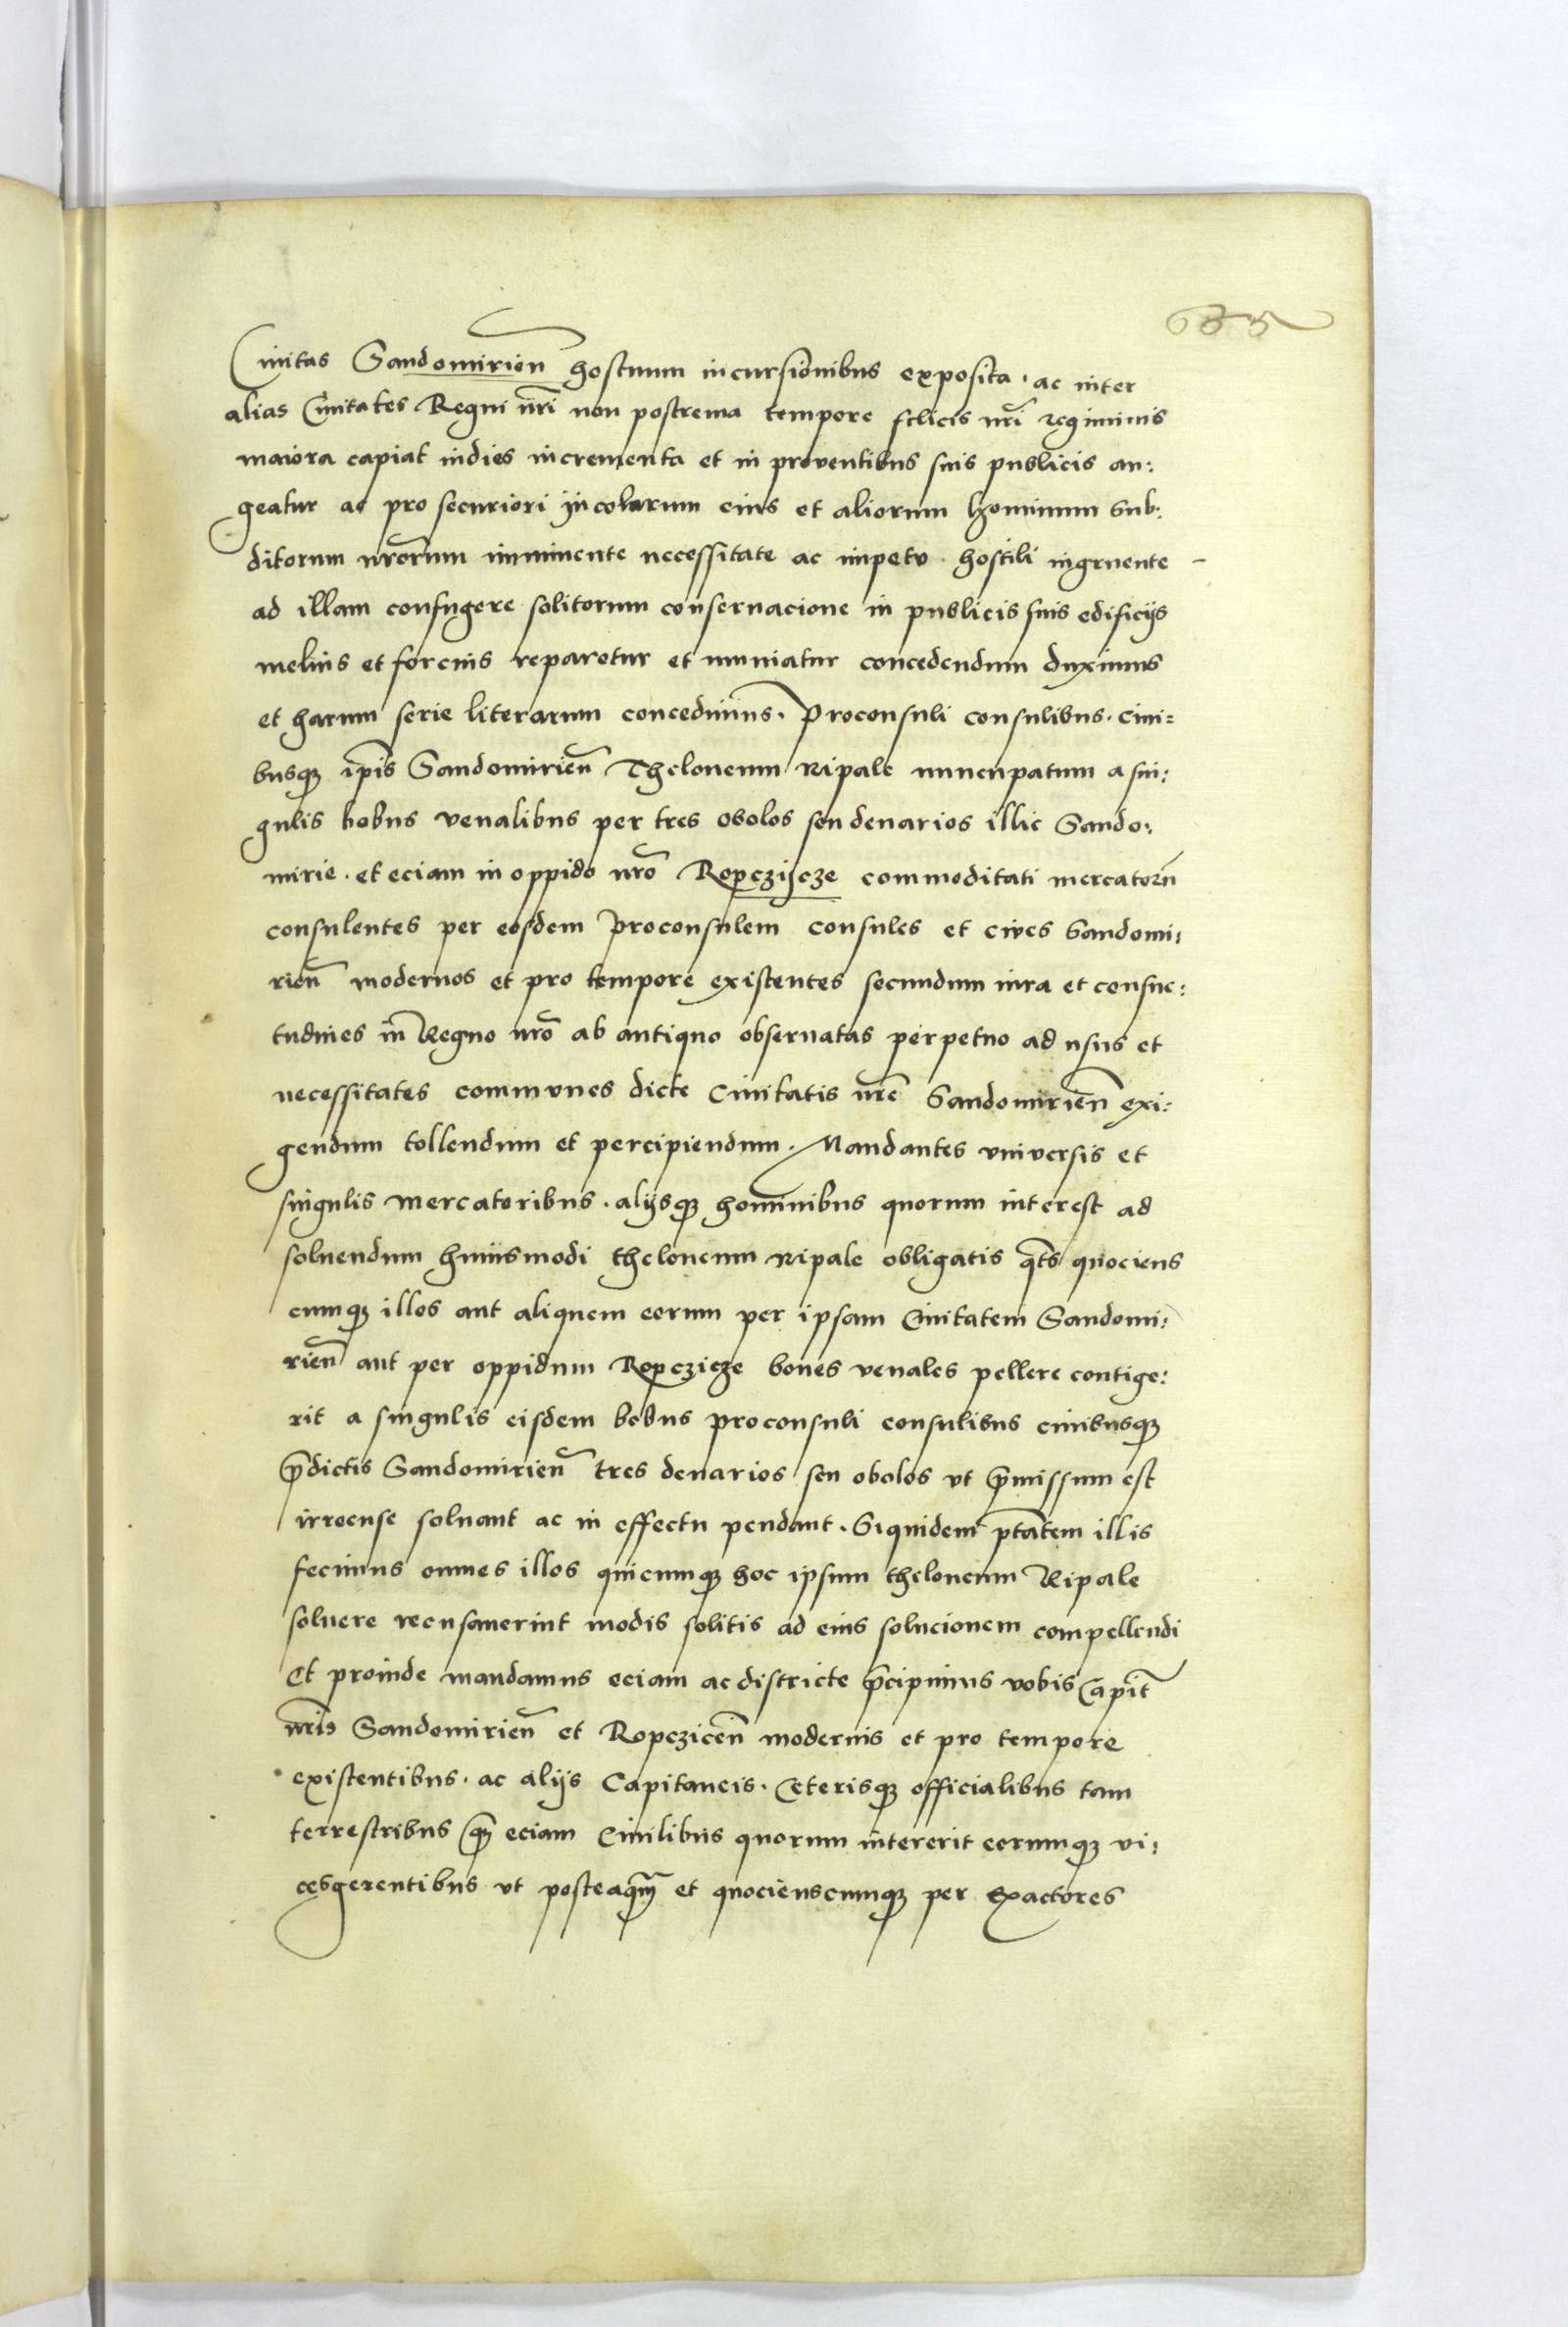 635
Ciuitas Sandomirien̄ hostium incursionibus exposita. ac inter
alias Ciuitates Regni nr̄i non postrema tempore felicis nr̄i regiminis
maiora capiat indies incrementa et in prouentibus suis publicis au:
geatur ac pro securiori incolarum eius et aliorum hominum Sub:
ditorum nr̄orum imminente necessitate ac impetu hostili ingruente -
ad illam confugere solitorum conseruacione in publicis suis edificijs
melius et forcius reparetur et muniatur concedendum duximus
et harum serie literarum concedimus. Proconsuli consulibus. ciui=
busqz ip̄is Sandomirien̄ Theloneum Ripale nuncupatum a sin:
gulis bobus venalibus per tres obolos seu denarios illic Sando:
mirie. et eciam in oppido nr̄o Ropczijcze commoditati mercatorū
consulentes per eosdem Proconsulem consules et ciues Sandomi:
rien̄ modernos et pro tempore existentes secundum iura et consue:
tudines in Regno nr̄o ab antiquo obseruatas perpetuo ad usus et
necessitates communes dicte Ciuitatis nr̄e Sandomirien̄ exi:
gendum tollendum et percipiendum. Mandantes vniuersis et
singulis mercatoribus. alijsqz hominibus quorum interest ad
soluendum huiusmodi theloneum Ripale obligatis qt̄s quociens
cumqz illos aut aliquem eorum per ipsam Ciuitatem Sandomi:
rien̄ aut per oppidum Ropczicze boues venales pellere contige:
rit a singulis eisdem bobus proconsuli consulibus ciuibusqz
p̄dictis Sandomirien̄ tres denarios seu obolos vt p̄missum est
irrecuse soluant ac in effectu pendant. Siquidem p̄tatem illis
fecimus omnes illos quicumqz hoc ipsum theloneum Ripale
soluere recusauerint modis solitis ad eius solucionem compellendi
Et proinde mandamus eciam ac districte p̄cipimus vobis Capit̄
nr̄is Sandomirien̄ et Ropczicen̄ modernis et pro tempore
existentibus. ac alijs Capitaneis. Ceterisqz officialibus tam
terrestribus q̄ eciam Ciuilibus quorum intererit eorumqz vi:
cesgerentibus vt posteaq̄m et quocienscumqz per exactores